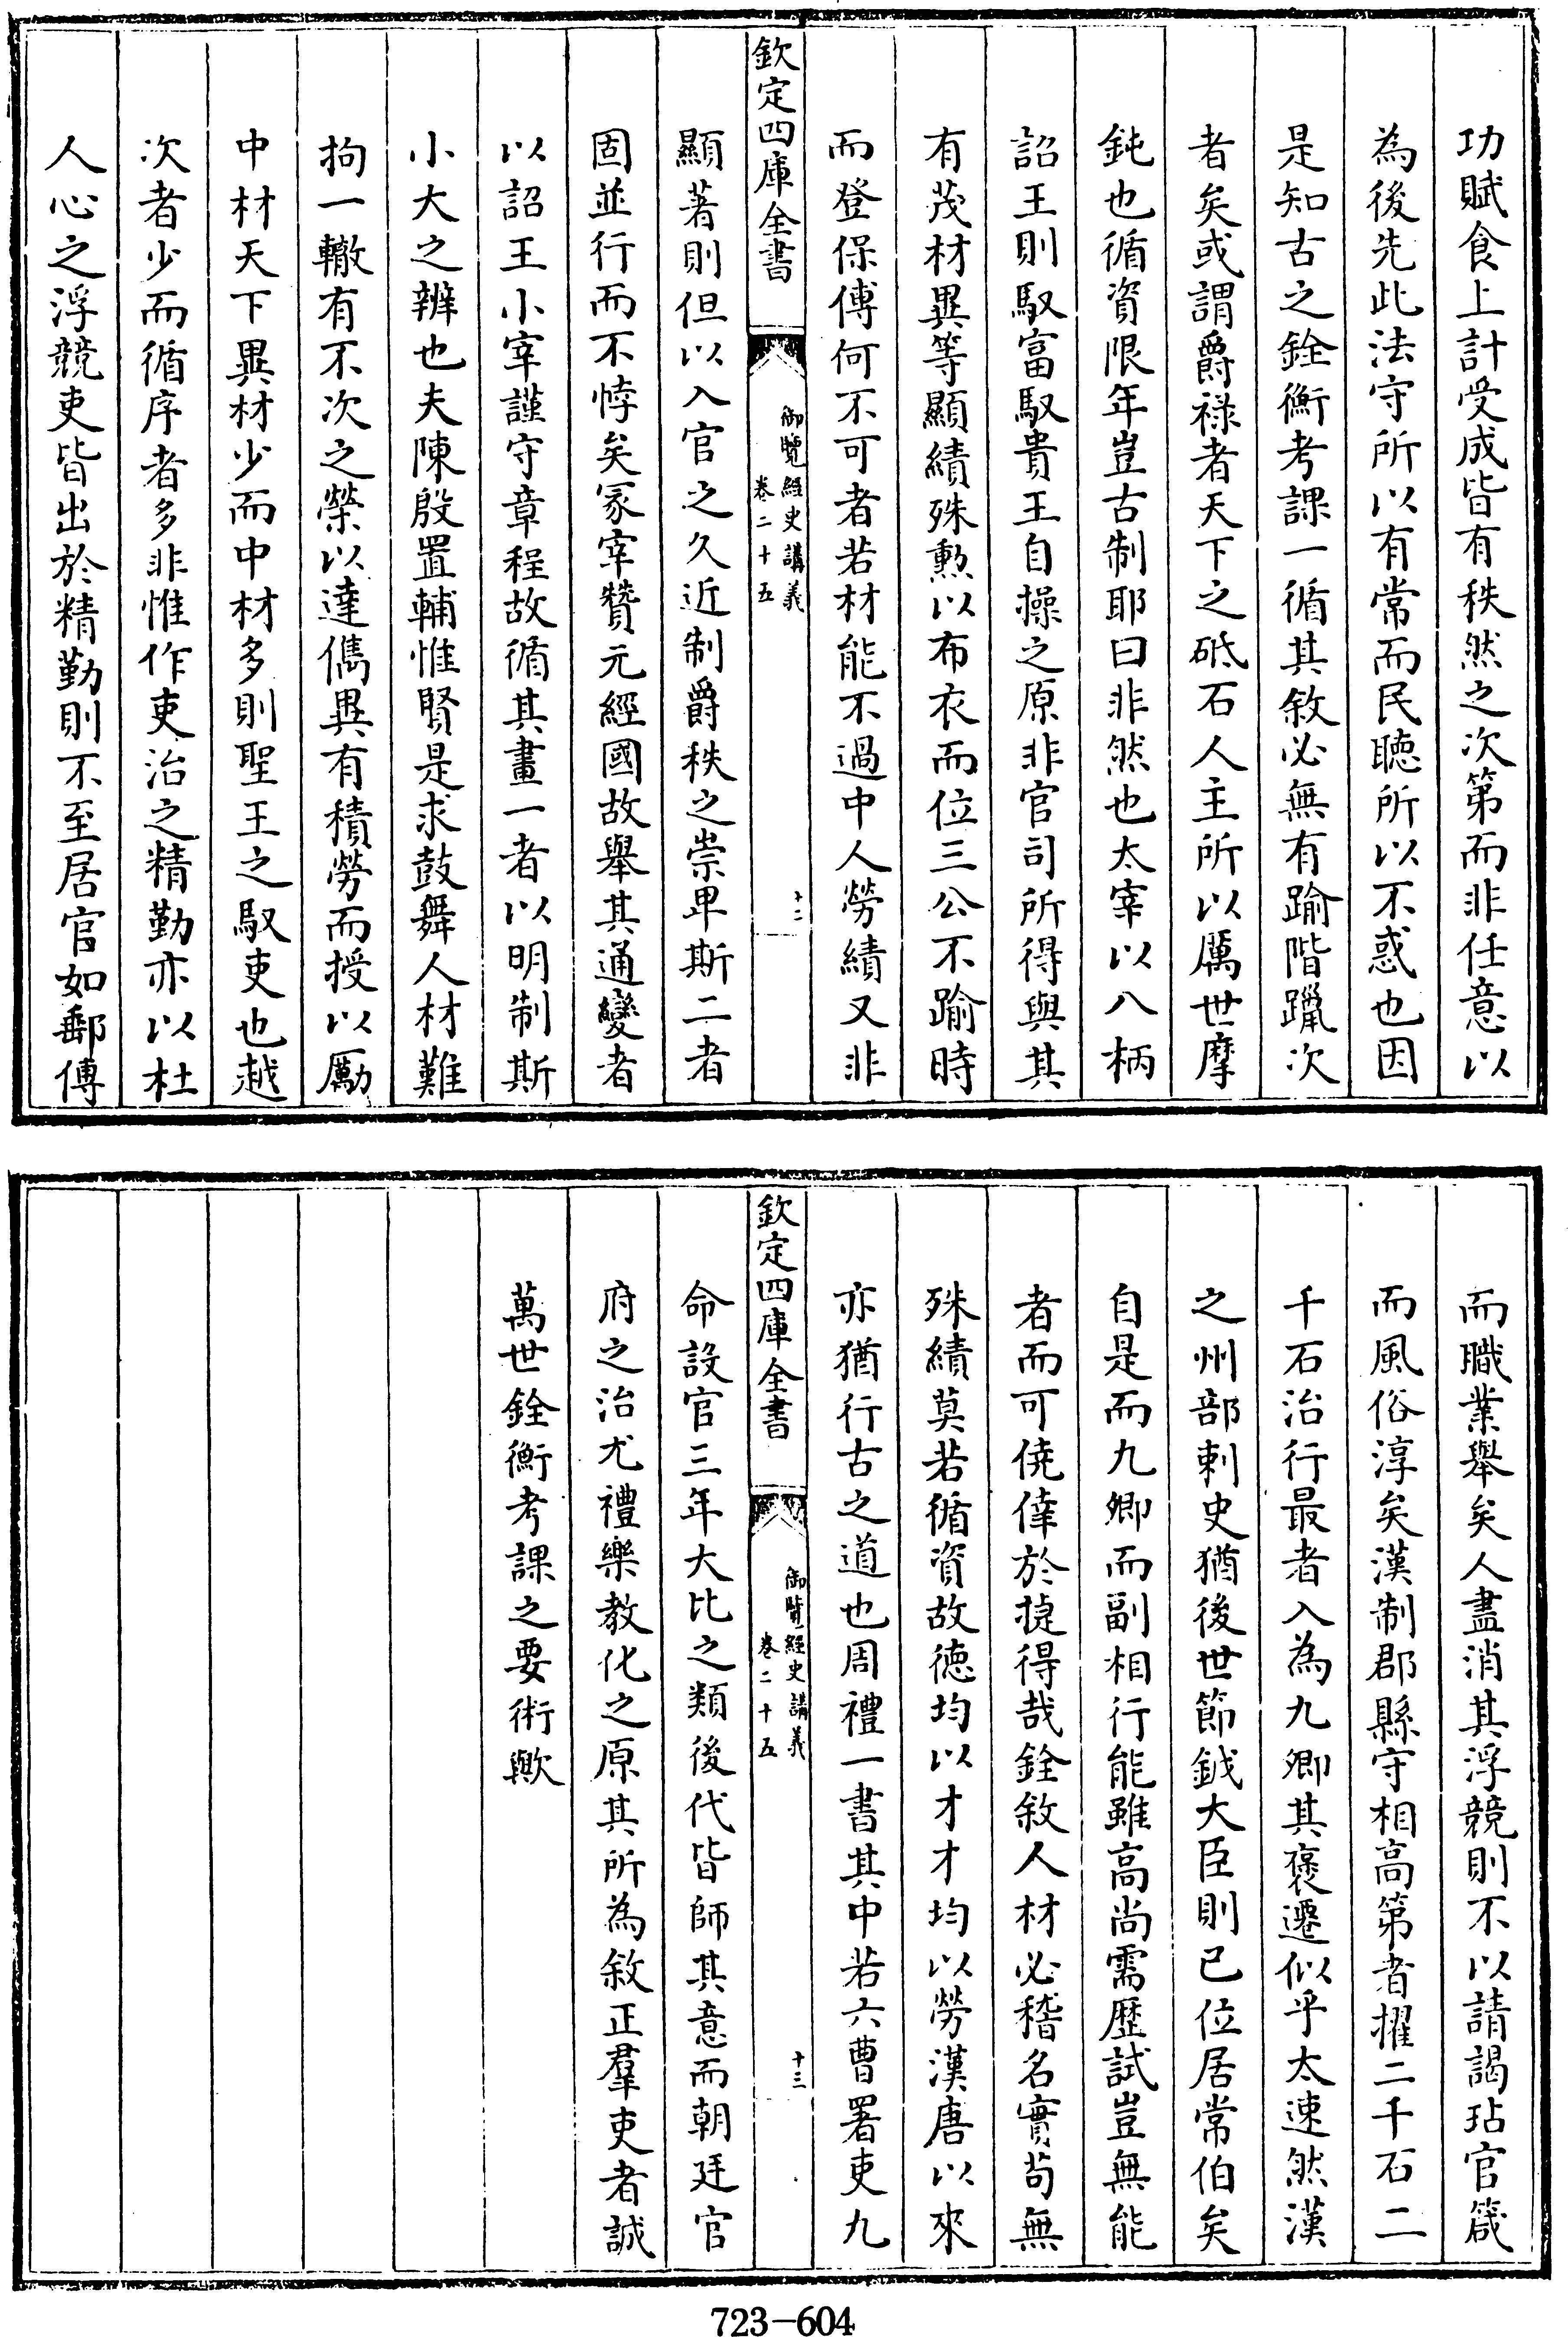 功賦食上計受成皆有秩然之次第而非任意以
為後先此法守所以有常而民聴所以不惑也因
是知古之銓衡考課一循其敘必無有踰階躐次
者矣或謂爵禄者天下之砥石人主所以厲世摩
鈍也循資限年豈古制耶曰非然也太宰以八柄
詔王則馭富馭貴王自操之原非官司所得與其
有茂材異等顯績殊勲以布衣而位三公不踰時
而登保傅何不可者若材能不過中人勞績又非
欽定四庫全書
御覽經史講義
卷二十五
十二
顯著則但以入官之久近制爵秩之崇卑斯二者
固並行而不悖矣冢宰贊元經國故舉其通變者
以詔王小宰謹守章程故循其畫一者以明制斯
小大之辨也夫陳殷置輔惟賢是求鼓舞人材難
拘一轍有不次之榮以達儁異有積勞而授以勵
中材天下異材少而中材多則聖王之馭吏也越
次者少而循序者多非惟作吏治之精勤亦以杜
人心之浮競吏皆出於精勤則不至居官如郵傳
而職業舉矣人盡消其浮競則不以請謁玷官箴
而風俗淳矣漢制郡縣守相高第者擢二千石二
千石治行最者入為九卿其褒遷似乎太速然漢
之州部刺史猶後世節鉞大臣則已位居常伯矣
自是而九卿而副相行能雖高尚需歴試豈無能
者而可僥倖於捷得哉銓敘人材必稽名實茍無
殊績莫若循資故徳均以才才均以勞漢唐以來
亦猶行古之道也周禮一書其中若六曹署吏九
欽定四庫全書
御覽經史講義
卷二十五
十三
命設官三年大比之類後代皆師其意而朝廷官
府之治尤禮樂教化之原其所為敘正羣吏者誠
萬世銓衡考課之要術歟
723-604